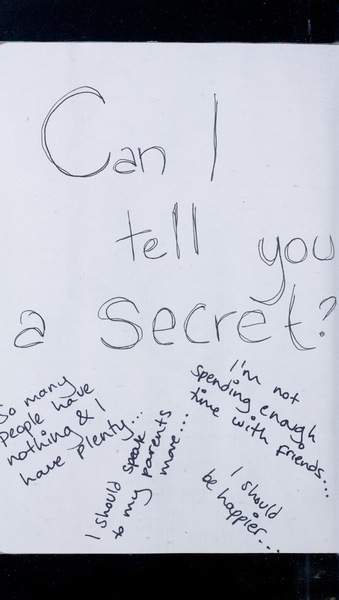 Can I
tell you
a secret?
So many
people have
nothing & I
have plenty...
I should speak
to my parents
more....
I'm not
spending enough
time with friends...
I should
be happier...